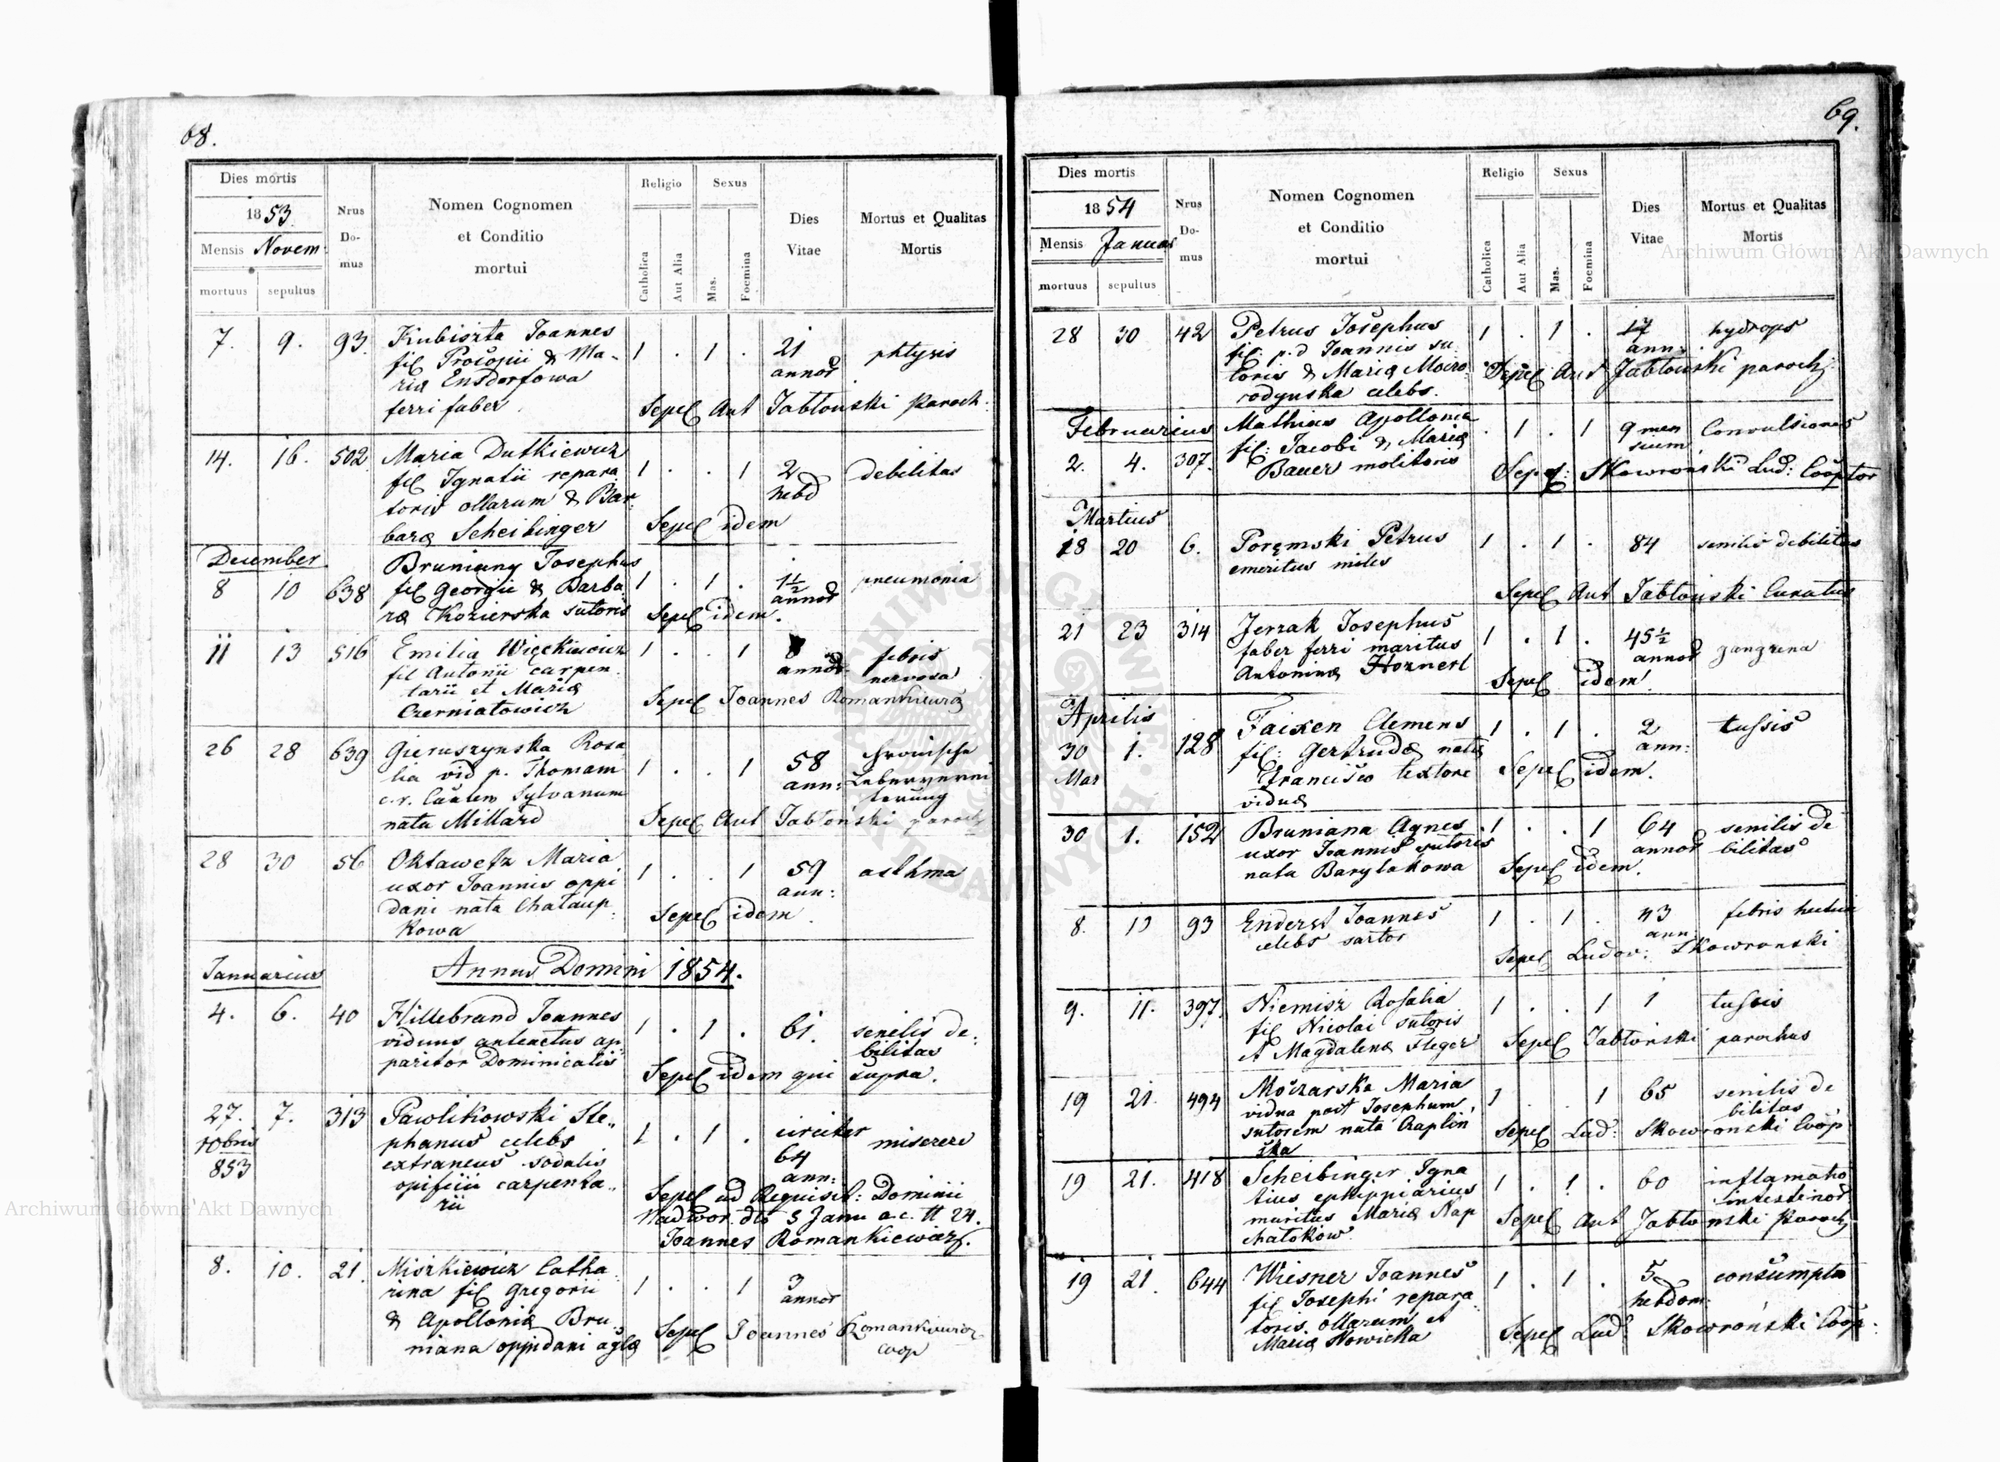 68.
Dies mortis
1853.
Mensis Novem:
mortuus sepultus
Nrus Do- mus
Nomen Cognomen
et Conditio
mortui
Religio
Catholica
Aut Alia
Sexus
Mas.
Foemina
Dies
Vitae
Mortus et Qualitas
Mortis
7. 9. 93. Kubiszta Joannes
fil Procopii & Ma-
ria Ensdorfowa
ferri faber
1 . 1 . 21
annor
phtysis
Sepel Ant Jabłoński Paroch:
14. 16. 502 Maria Dutkiewicz
fil Ignatii repara
toris ollarum & Bar-
bara Scheibinger
1 . . 1 2
hebd
debilitas
Sepel idem
December
8 10 638 Bruniany Josephus
fil Georgii & Barba
ra Kozierska sutoris
1 . 1 . 1½
annor
pneumonia
Sepel idem.
11 13 516 Emilia Więckiewicz
fil Antonii carpen
tarii et Maria
Czerniatowicz
1 . . 1 8
annor
febris
nervosa
Sepel Joannes Romankiewicz
26 28 639 Gieruszynska Rosa
lia vid p. Thomam
c.r. Sylvanum
nata Millard
1 . . 1 58
ann:
Sepel Ant Jabłoński paroch
28 30 56 Oktawetz Maria
uxor Joannis oppi
dani nata Chataup
kowa
1 . . 1 59
ann:
asthma
Sepel idem.
Januarius
Annus Domini 1854.
4. 6. 40 Hillebrand Joannes
viduus anteactus ap
paritor Dominicalis
1 . 1 . 61.
senilis de:
bilitas
Sepel idem qui supra.
27. 7. 313 Pawlikowski Ste,,
10bris
853
phanus celebs
extraneus sodalis
opificii carpenta,,
rii
1 . 1 . circiter
64
ann:
miserere
Sepel ad Requisit: Dominii
Nadwor. dto 5 Janu a.c. N 24.
Joannes Romankiewicz.
8. 10. 21. Miszkiewicz Catha
rina fil Gregorii
& Apollonia Bru
niana oppidani
1 . . 1 3
annor
Sepel Joannes Romankiewicz
coop
69.
Dies mortis
1854
Mensis Januar
mortuus sepultus
Nrus Do- mus
Nomen Cognomen
et Conditio
mortui
Religio
Catholica
Aut Alia
Sexus
Mas.
Foemina
Dies
Vitae
Mortus et Qualitas
Mortis
28 30 42 Petrus Josephus
fil: p.d Joannis su
toris & Maria Moiro
rodynska celebs.
1 . 1 . 17
ann:
hydrops
Sepel Ant Jabłoński paroch:
Februarius
2. 4. 307. Mathias Apollonia
fil: Jacobi & Maria
Bauer molitoris
. 1 . 1 9 men
sium
Convulsiones
Sepel: Skowroński Lud: Cooptor
Martius
18 20 6. Poręmski Petrus
emeritus miles
1 . 1 . 84 senilis debilitas
Sepel Ant Jabłoński Curatus
21 23 314 Jerzak Josephus
faber ferri maritus
Antonina Hoznerl
1 . 1 . 45½
annor
gangrena
Sepel idem.
Aprilis
30 1. 128 Faixen Clemens
Mar
fil: Gertruda nata
Francisco textore
vidua
1 . 1 . 2
ann:
tussis
Sepel idem.
30 1. 152 Bruniana Agnes
uxor Joannis sutoris
nata Barylakowa
1 . . 1 64
annor
senilis de
bilitas
Sepel idem.
8. 10 93 Enderst Joannes
celebs sartor
1 . 1 . 43
ann
febris hectica
Sepel Ludov: Skowronski
9. 11. 397. Niemisz Rosalia
fil Nicolai sutoris
et Magdalena Fleger
1 . . 1 1
tussis
Sepel Jabłoński parochus
19 21. 494 Moczarska Maria
vidua post Josephum
sutorem nata Czaplin
ska
1 . . 1 65 senilis de
bilitas
Sepel Lud: Skowroński Coop
19 21. 418 Scheibinger Igna
tius ephippiarius
maritus Maria Kap
chatokow
1 . 1 . 60 inflamatio
intestinor
Sepel Ant Jabłoński Paroch
19 21. 644 Wiesner Joannes
fil Josephi repara
toris ollarum et
Maria Nowicka
1 . 1 . 5
hebdom:
consumptio
Sepel Lud Skowroński Coop:
Archiwum Główne Akt Dawnych
Archiwum Główne Akt Dawnych
ARCHIWUM GŁÓWNE AKT DAWNYCH